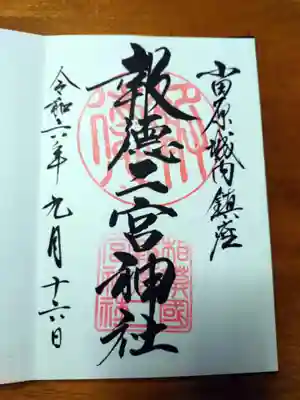 小田原城内鎮座
報徳二宮神社
令和六年九月十六日